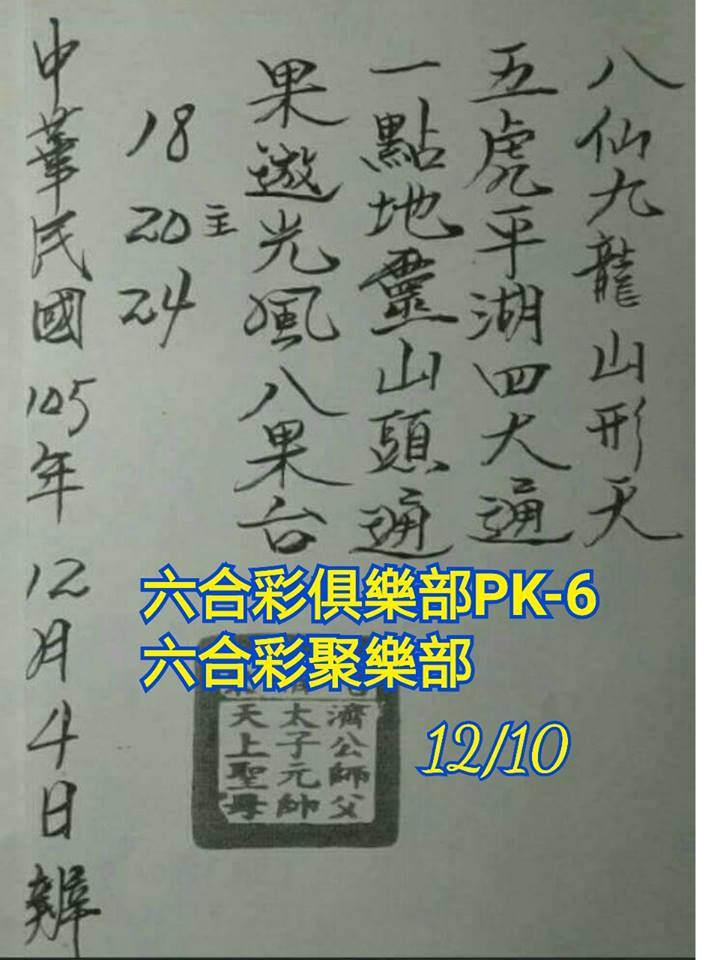 八仙九龍山形天
五虎平湖四大通
一點地靈山頭通
果遊光風八果台
18
20主
24
中華民國105年12月4日辦
六合彩俱樂部PK-6
六合彩聚樂部
12/10
濟公師父
太子元帥
天上聖母